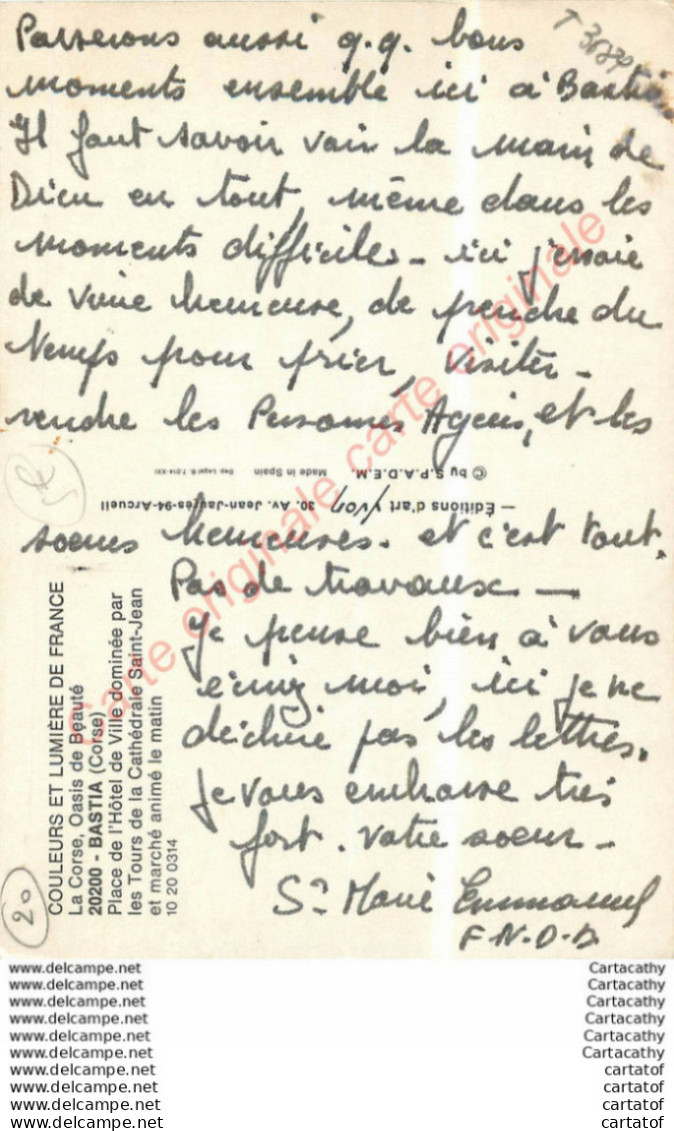 T 36839
Passerons aussi q.q. bons
moments ensemble ici à Bastia.
Il faut savoir voir la main de
Dieu en tout, même dans les
moments difficiles - ici j'essaie
de vivre heureuse, de prendre du
temps pour prier, visiter -
rendre les Personnes Agées, et les
© by S.P.A.D.E.M. Made in Spain
— Éditions d'art Yvon 30. Av. Jean-Jaurès-94-Arcueil
soeurs heureuses. et c'est tout.
Pas de travaux —
Je pense bien à vous
écrivez moi, ici je ne
déchire pas les lettres.
je vous embrasse très
fort. votre soeur -
Sr Marie Emmanuel
F.N.D.D
COULEURS ET LUMIÈRE DE FRANCE
La Corse, Oasis de Beauté
20200 - BASTIA (Corse)
Place de l'Hôtel de Ville dominée par
les Tours de la Cathédrale Saint-Jean
et marché animé le matin
10 20 0314
20
Carte originale carte originale
www.delcampe.net Cartacathy
www.delcampe.net Cartacathy
www.delcampe.net Cartacathy
www.delcampe.net Cartacathy
www.delcampe.net Cartacathy
www.delcampe.net Cartacathy
www.delcampe.net cartatof
www.delcampe.net cartatof
www.delcampe.net cartatof
www.delcampe.net cartatof